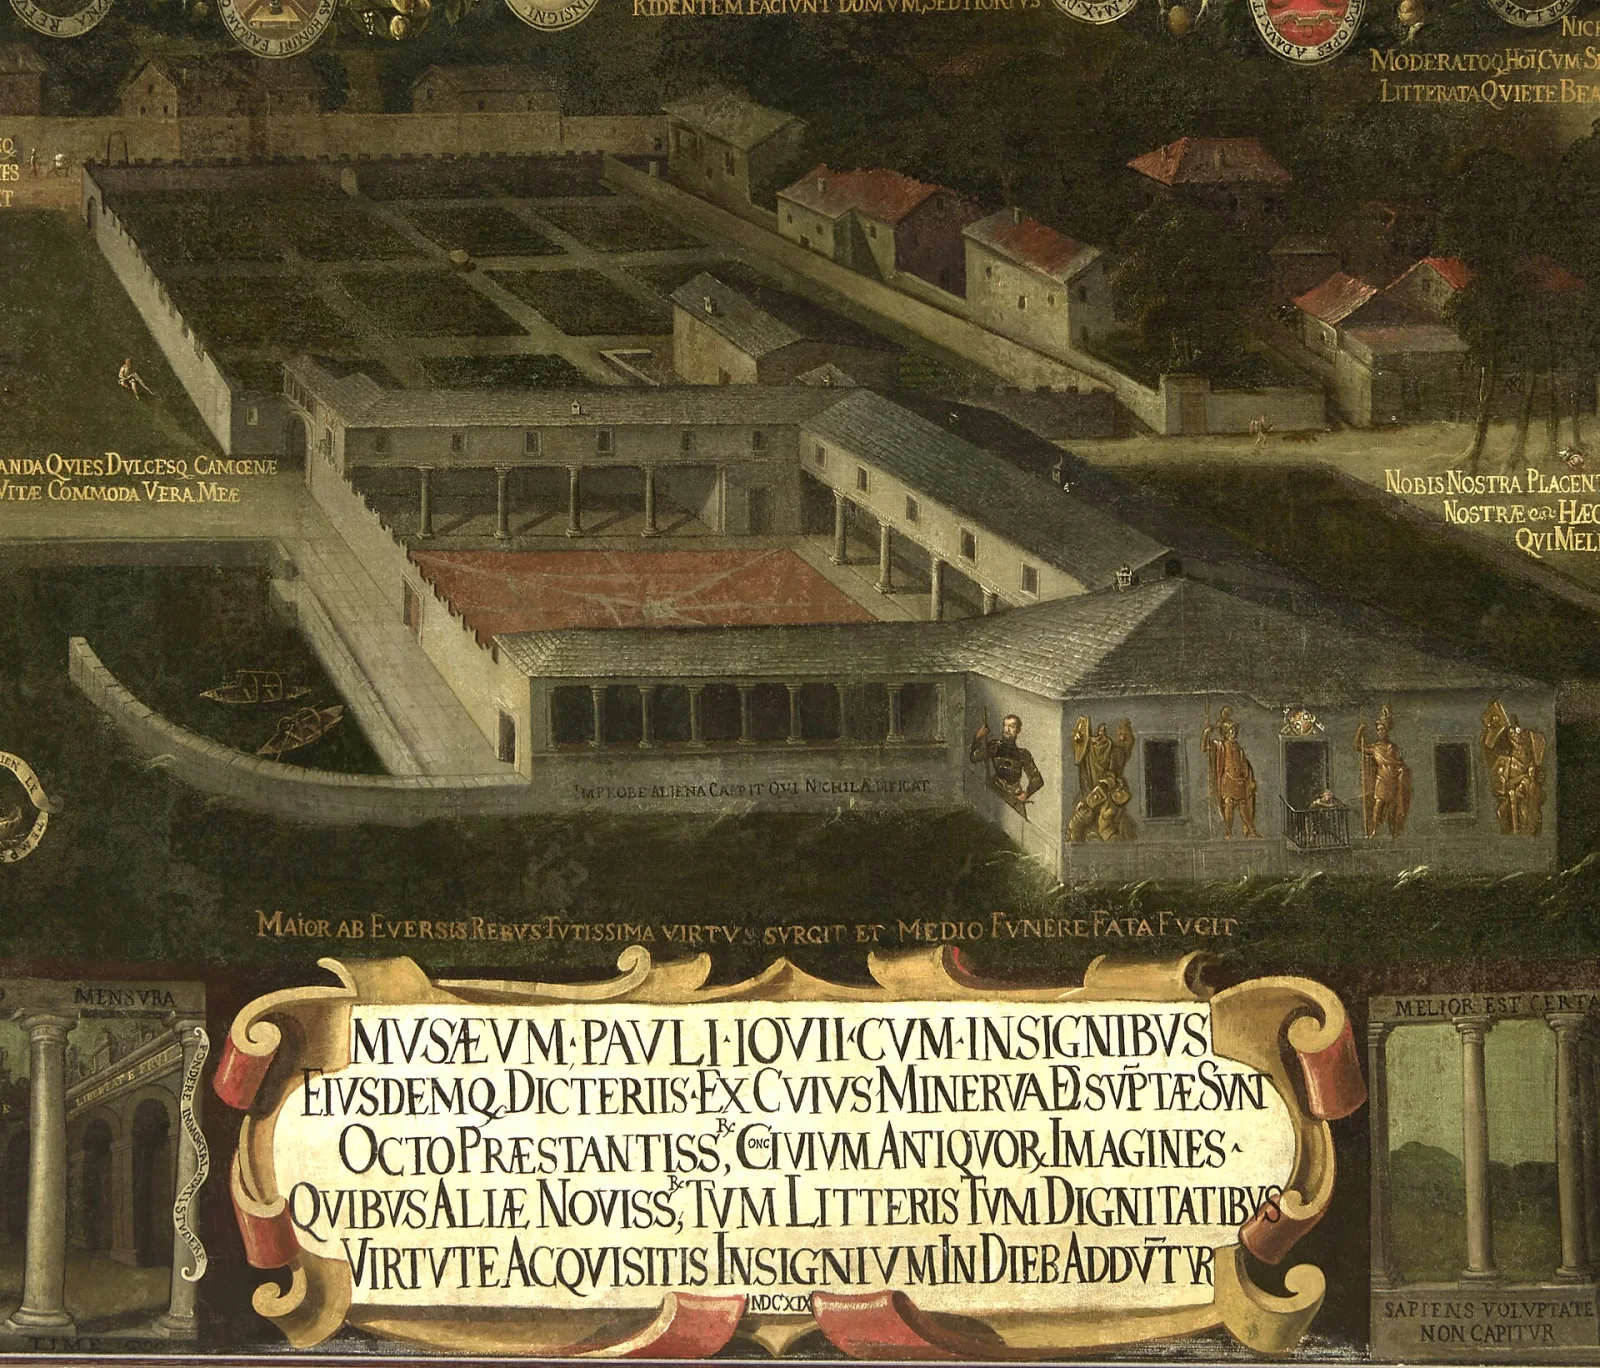 INSIGNE
RIDENTEM FACIVNT DOMVM, SED HORTVS
MODERATOQ HOI CVM
LITTERATA QVIETE BEA
ANDA QVIES DVLCESQ CAMŒNÆ
VITÆ COMMODA VERA MEÆ
NOBIS NOSTRA PLACENT
NOSTRÆ HÆC
QVI MELI
IMPROBE ALIENA CARPIT QVI NICHIL ÆDIFICAT
MAIOR AB EVERSIS REBVS TVTISSIMA VIRTVS SVRGIT ET MEDIO FVNERE FATA FVGIT
MENSVRA
LIBERTATE FRVI
PONDERE IMMORTALITATI STVDERE
MVSÆVM · PAVLI · IOVII · CVM · INSIGNIBVS
EIVSDEMQ DICTERIIS · EX CVIVS MINERVA DĒSVPTÆ SVNT
OCTO PRÆSTANTISS, CIVIVM ANTIQVOR IMAGINES ·
QVIBVS ALIÆ NOVISS, TVM LITTERIS TVM DIGNITATIBVS
VIRTVTE ACQVISITIS INSIGNIVM IN DIEB ADDVT̄VR
MDCXIX
MELIOR EST CERTA
SAPIENS VOLVPTATE
NON CAPITVR